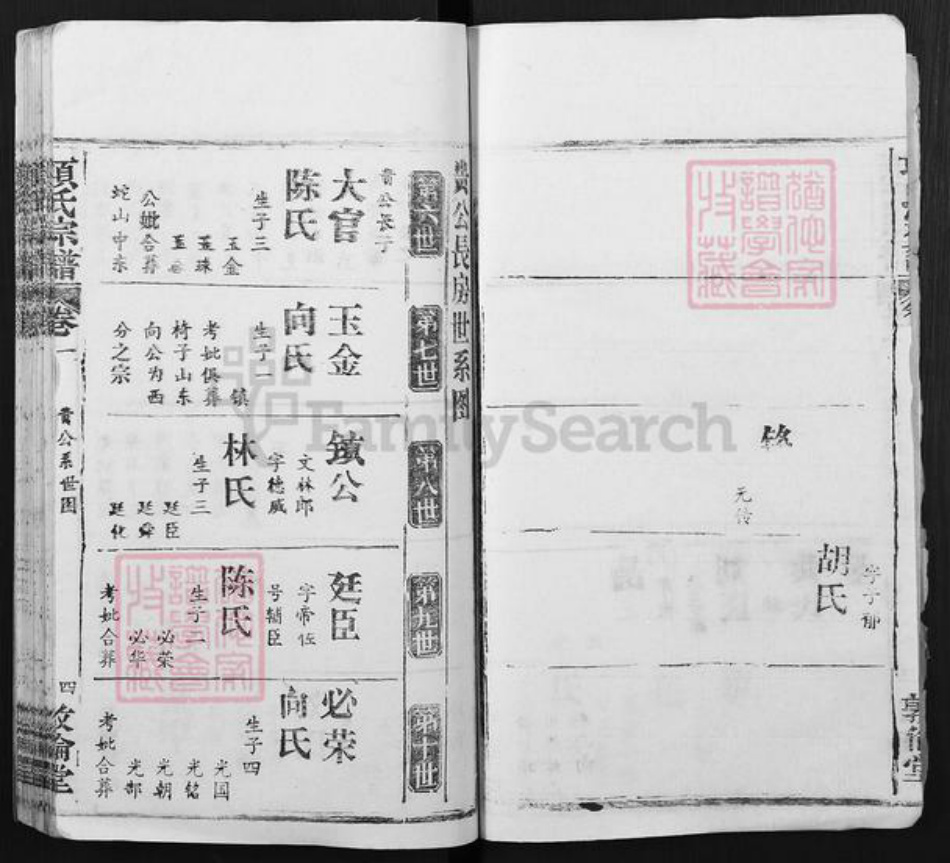 字子郁
胡氏
元传
敦倫堂
贵公長房世系图
第六世
贵公長子
大官
陈氏
生子三
玉金
玉珠
公妣合葬
蛇山中东
第七世
玉金
向氏
生子一
镇
考妣俱葬
椅子山东
向公为西
分之宗
第八世
镇公
文林郎
字德威
林氏
生子三
廷臣
廷舜
廷化
第九世
廷臣
字帝佐
号辅臣
陈氏
生子二
必荣
必华
考妣合葬
第十世
必荣
向氏
生子四
光国
光铭
光朝
光郜
考妣合葬
項氏宗譜
卷一
贵公系世图
四
敦倫堂
FamilySearch